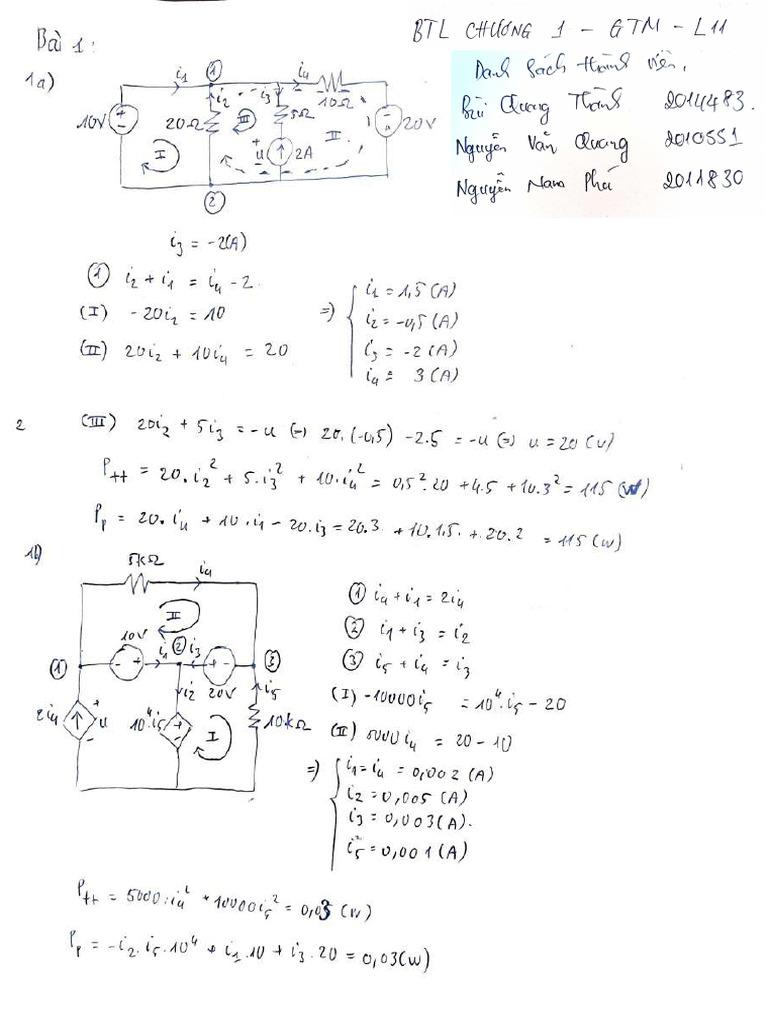 BTL CHƯƠNG 1 - GTM - L11
Danh sách thành viên.
Bùi Quang Thành 2014483.
Nguyễn Văn Quang 2010551
Nguyễn Nam Phú 2011830
Bài 1:
1a)
i1 ① i2 i3 i4 10Ω
10V 20Ω 5Ω 20V
I III II
u 2A
②
i3 = -2(A)
① i2 + i1 = i4 - 2
(I) - 20i2 = 10
(II) 20i2 + 10i4 = 20
=> { i1 = 1,5 (A)
i2 = -0,5 (A)
i3 = -2 (A)
i4 = 3 (A)
2 (III) 20i2 + 5i3 = -u (=) 20.(-0,5) - 2.5 = -u (=) u = 20 (V)
Ptt = 20.i2² + 5.i3² + 10.i4² = 0,5².20 + 4.5 + 10.3² = 115 (W)
Pp = 20.i4 + 10.i1 - 20.i3 = 20.3 + 10.1,5. + 20.2 = 115 (W)
1b)
5kΩ i4
II
① 10V i1 ② i3 ③
2i4 u i2 20V i5
10⁴.i5 I 10kΩ
① i4 + i1 = 2i4
② i1 + i3 = i2
③ i5 + i4 = i3
(I) -10000i5 = 10⁴.i5 - 20
(II) 5000i4 = 20 - 10
=> { i1 = i4 = 0,002 (A)
i2 = 0,005 (A)
i3 = 0,003 (A).
i5 = 0,001 (A)
Ptt = 5000.i4² + 10000i5² = 0,03 (W)
Pp = -i2.i5.10⁴ + i1.10 + i3.20 = 0,03 (W)